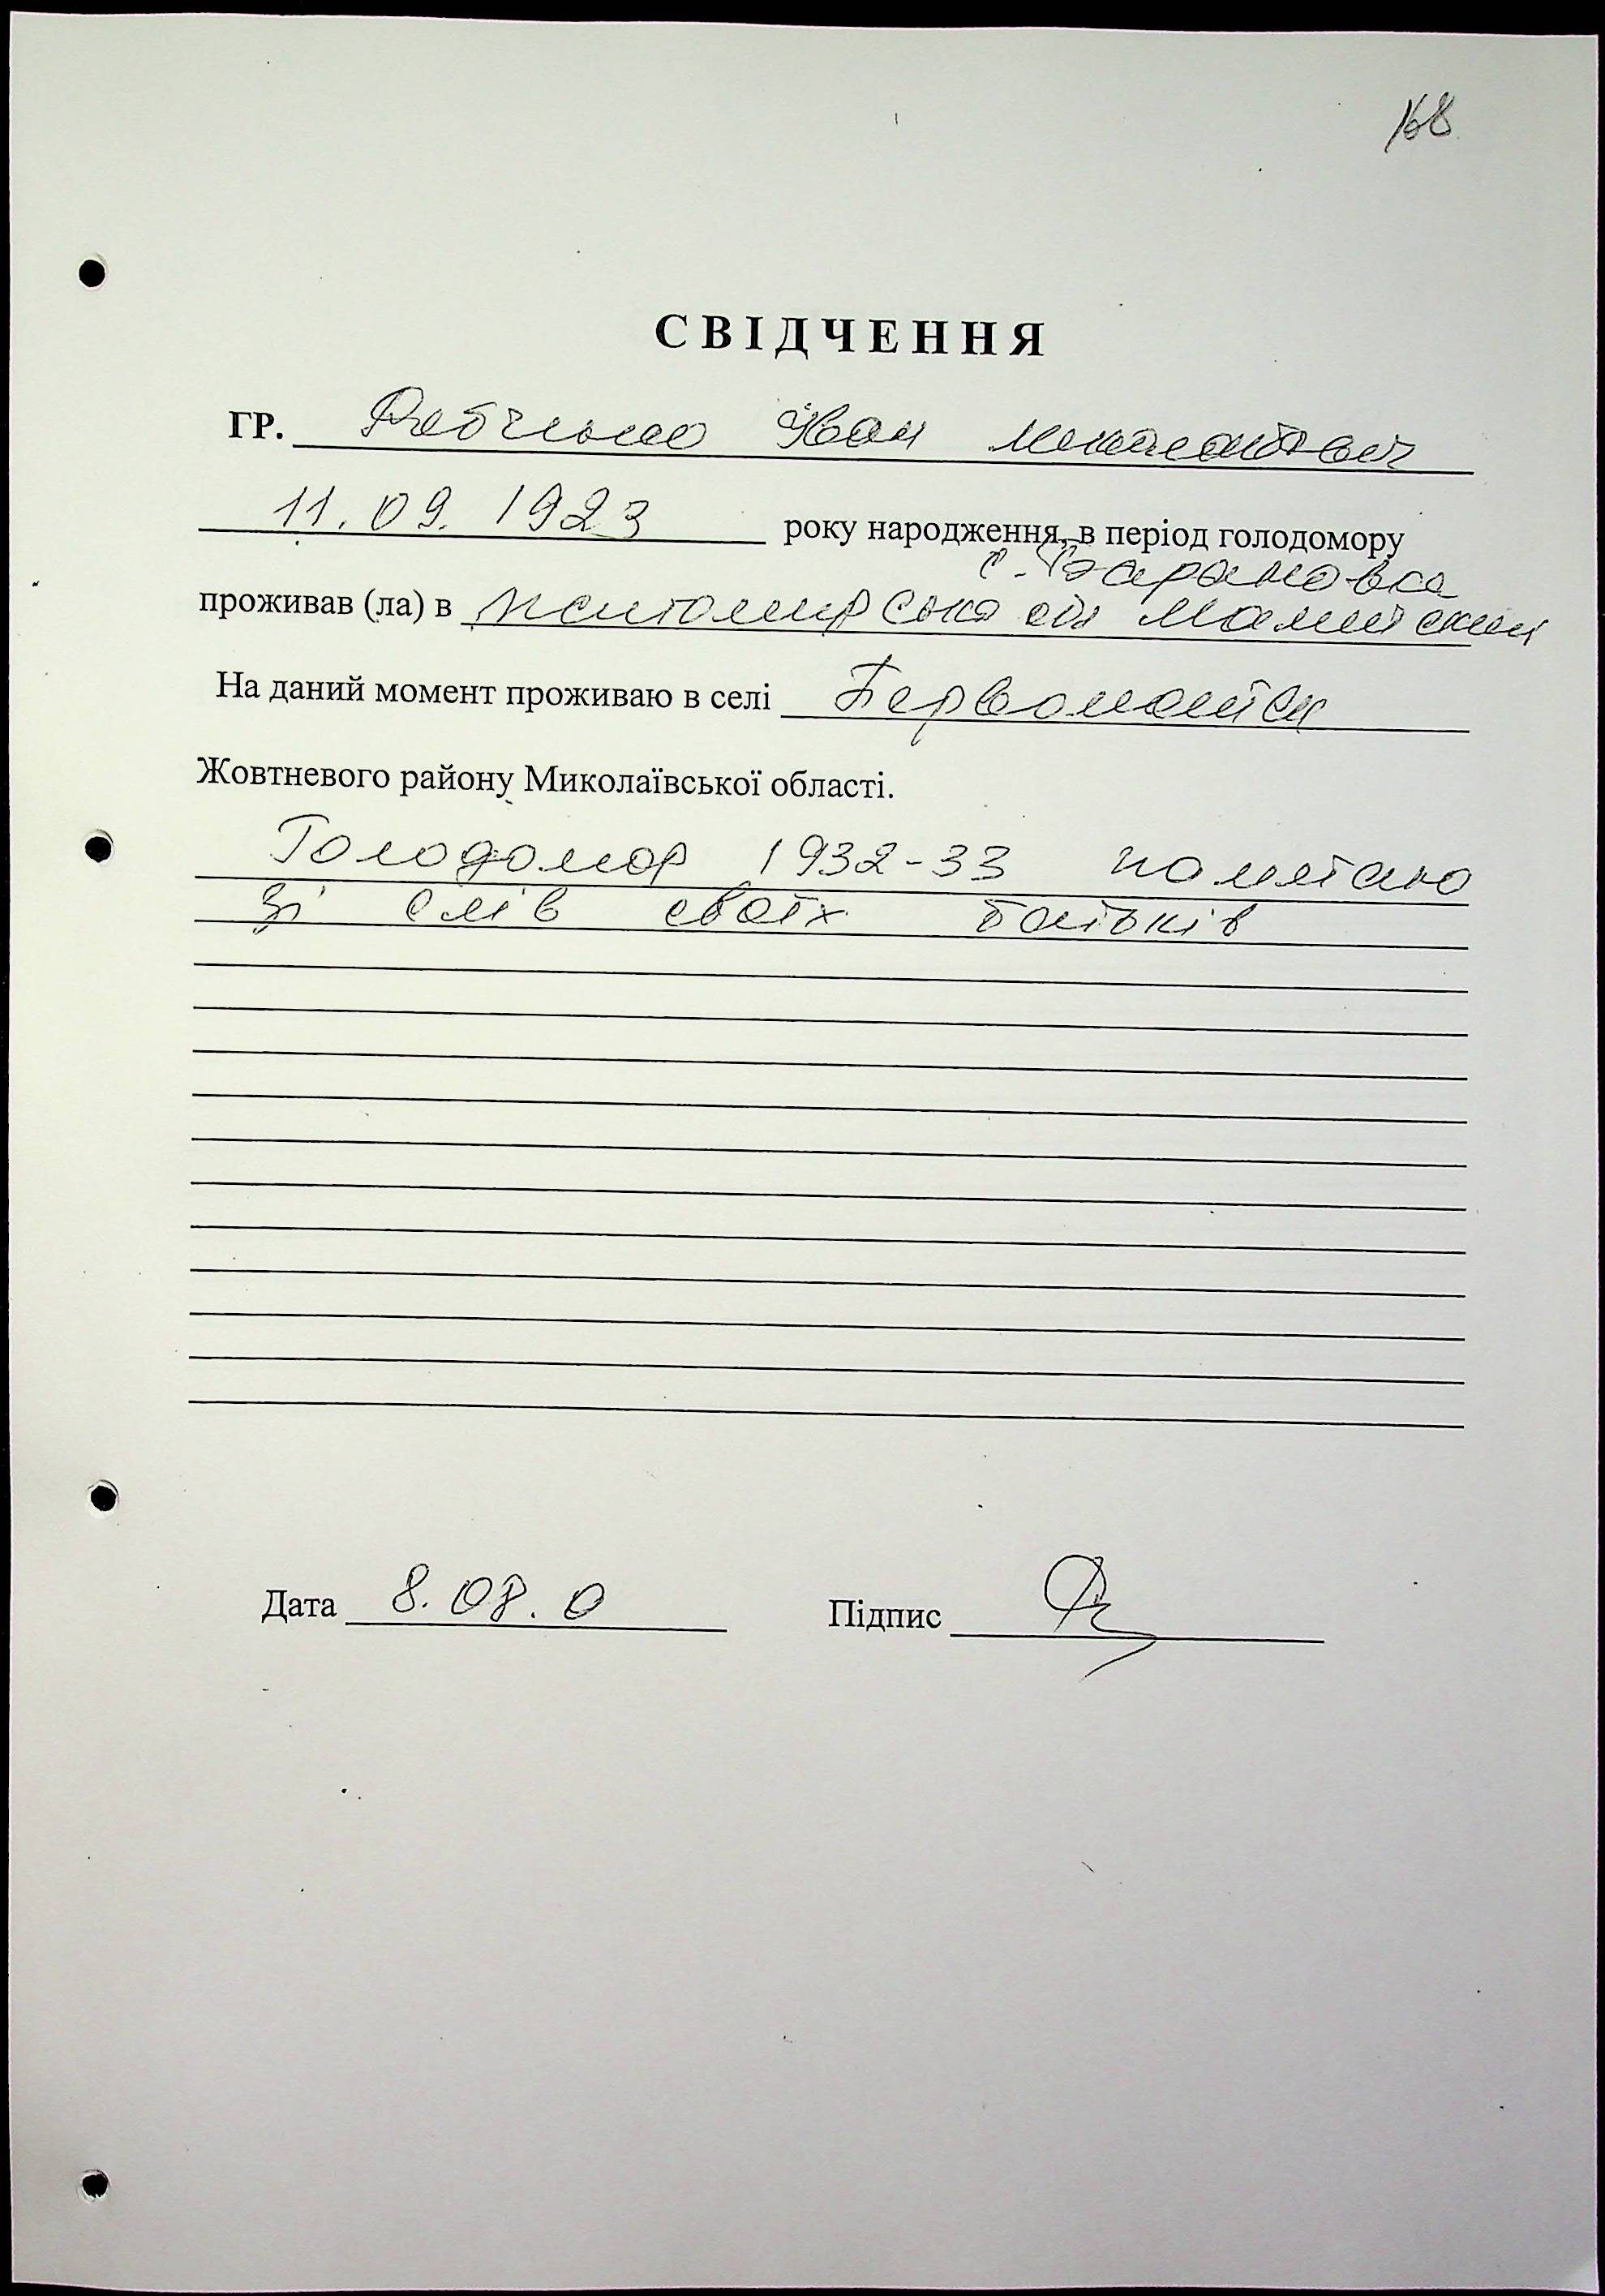 168
СВІДЧЕННЯ
ГР. Іван Миколайович
11.09.1923 року народження, в період голодомору
с. Барановка
проживав (ла) в Житомирська
На даний момент проживаю в селі Первомайск
Жовтневого району Миколаївської області.
Голодомор 1932-33 памятаю
зі слів своїх батьків
Дата 8.08.0 Підпис